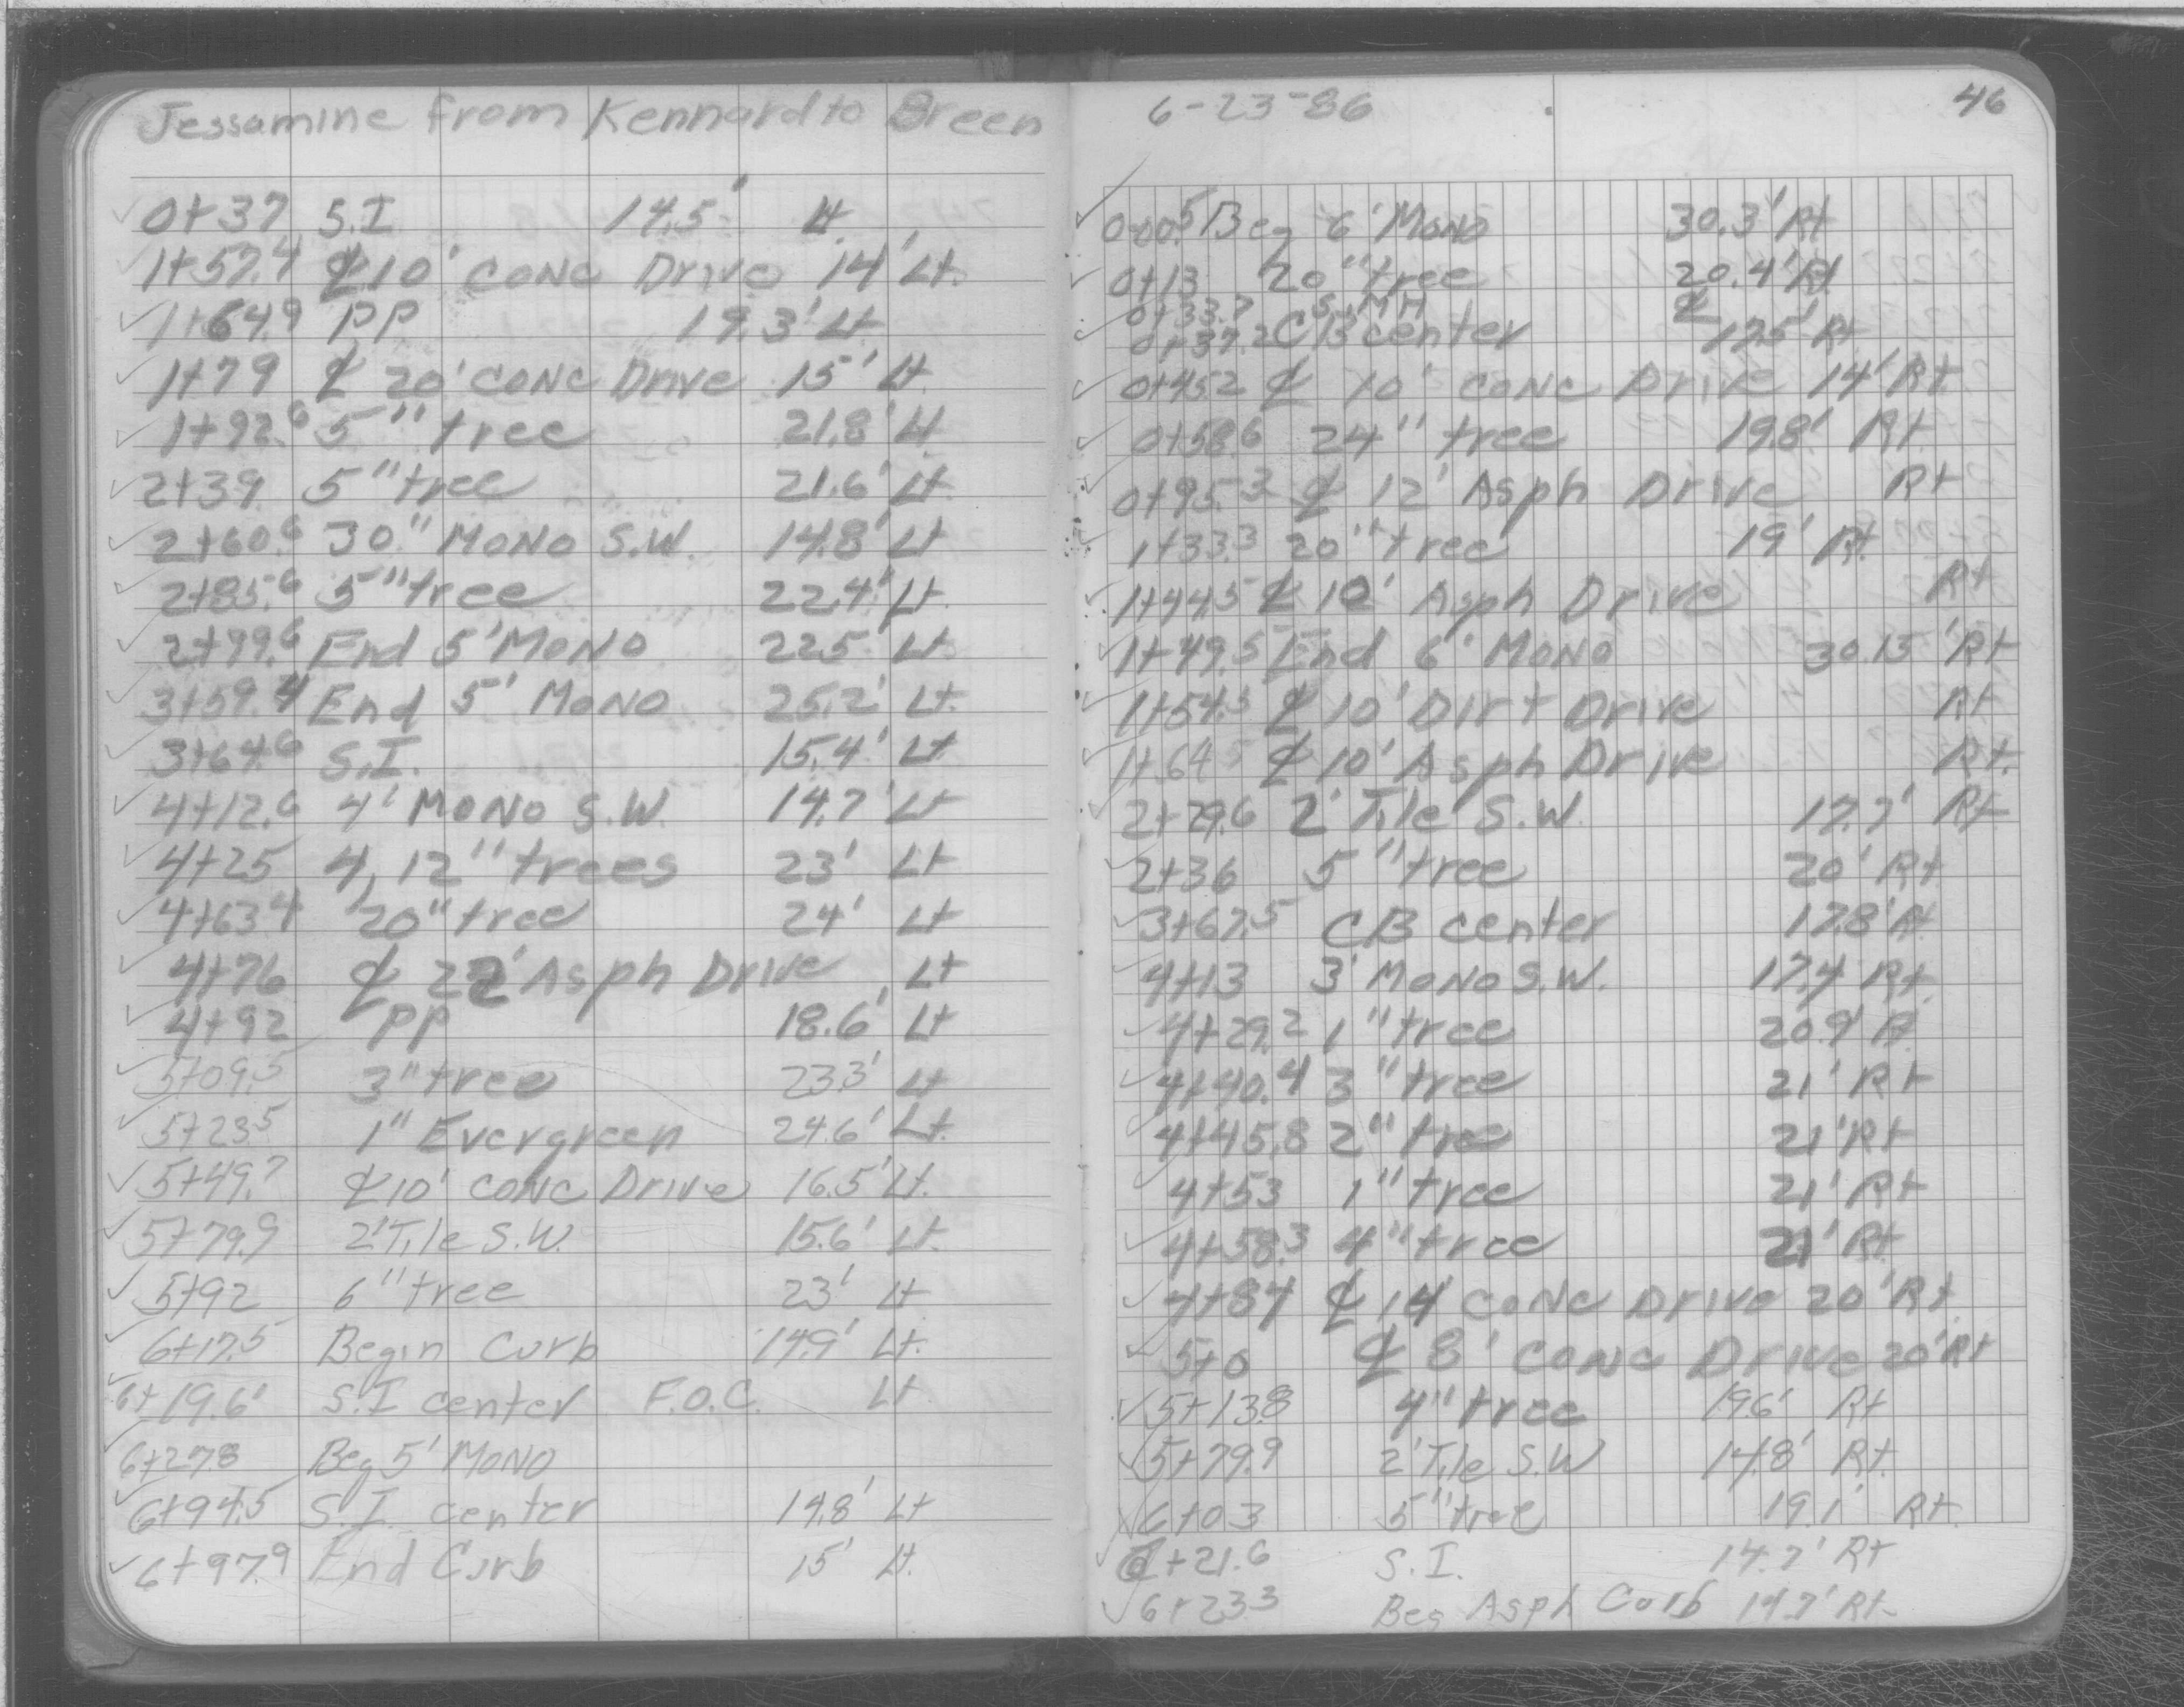 Jessamine from Kennard to Breen
0+37 S.I 14.5' Lt
1+57.4 ℄ 10' CONC Drive 14' Lt.
1+64.9 PP 19.3' Lt
1+79 ℄ 20' CONC Drive 15' Lt
1+92.6 5" tree 21.8' Lt
2+39 5" tree 21.6' Lt
2+60.6 30" MONO S.W. 14.8' Lt
2+85.6 5" tree 22.4' Lt
2+99.6 End 5' MONO 22.5 Lt
3+59.4 End 5' MONO 25.2' Lt.
3+64.6 S.I. 15.4' Lt
4+12.6 4' MONO S.W. 14.7' Lt
4+25 4, 12" trees 23' Lt
4+63.4 20" tree 24' Lt
4+76 ℄ 22' Asph Drive Lt
4+92 PP 18.6' Lt
5+09.5 3" tree 23.3' Lt
5+23.5 1" Evergreen 24.6' Lt.
5+49.7 ℄ 10' CONC Drive 16.5' Lt.
5+79.9 2' Tile S.W. 15.6' Lt.
5+92 6" tree 23' Lt
6+17.5 Begin Curb 14.9' Lt.
6+19.6' S.I center F.O.C. Lt
6+27.8 Beg 5' MONO
6+94.5 S.I. center 14.8' Lt
6+97.9 End Curb 15' Lt.
6-23-86 46
0+00.5 Beg 6' MONO 30.3' Rt
0+13 20" tree 20.4' Rt
0+33.7 S.MH ℄
0+37.2 CB center 17.5' Rt
0+45.2 ℄ 10' CONC Drive 14' Rt
0+58.6 24" tree 19.8' Rt
0+95.3 ℄ 12' Asph Drive Rt
1+33.3 20" tree 19' Rt
1+44.5 ℄ 10' Asph Drive Rt
1+49.5 End 6' MONO 30.15' Rt
1+54.5 ℄ 10' Dirt Drive Rt
1+64.5 ℄ 10' Asph Drive Rt.
2+29.6 2' Tile S.W. 17.7' Rt
2+36 5" tree 20' Rt
3+67.5 CB center 17.8' Rt
4+13 3' MONO S.W. 17.4 Rt
4+29.2 1" tree 20.9' R
4+40.4 3" tree 21' Rt
4+45.8 2" tree 21' Rt
4+53 1" tree 21' Rt
4+58.3 4" tree 21' Rt
4+87 ℄ 14' CONC Drive 20' Rt
5+0 ℄ 8' CONC Drive 20' Rt
5+13.8 4" tree 19.6' Rt
5+79.9 2' Tile S.W 14.8' Rt.
6+03 5" tree 19.1' Rt.
6+21.6 S.I. 14.7' Rt
6+23.3 Beg Asph Curb 14.7' Rt.